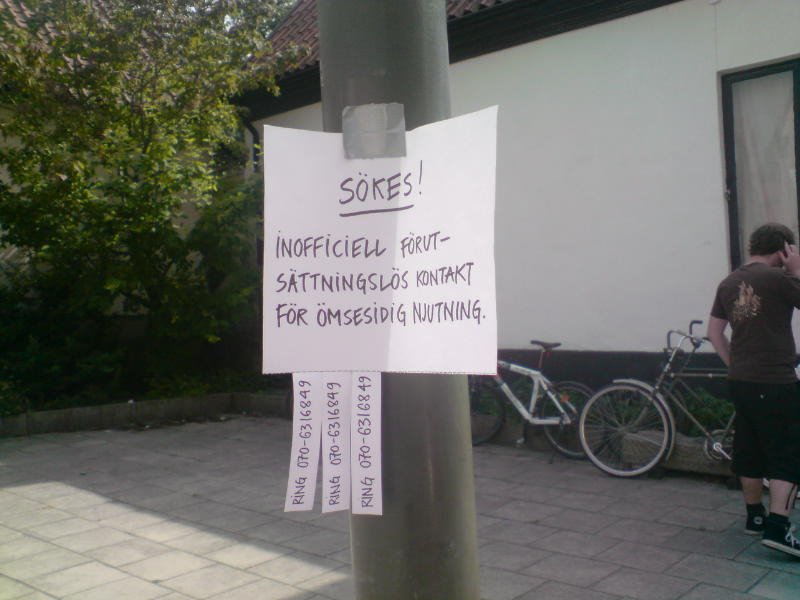 SÖKES!
INOFFICIELL FÖRUT-
SÄTTNINGSLÖS KONTAKT
FÖR ÖMSESIDIG NJUTNING.
RING 070-6316849
RING 070-6316849
RING 070-6316849